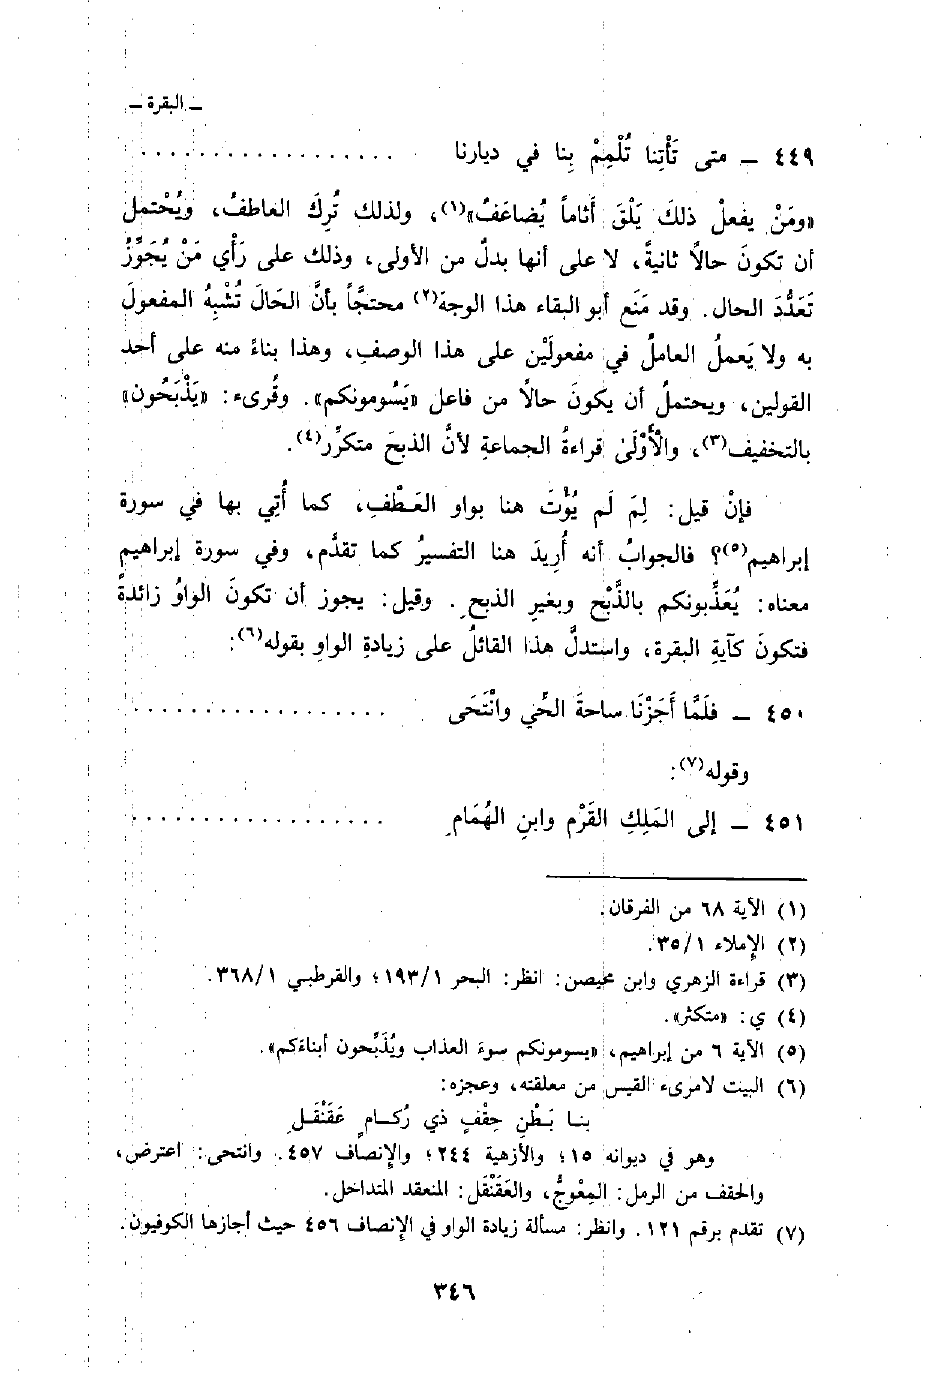 ـ البقرة ـ
٤٤٩ ـ متى تَأْتِنا تُلْمِمْ بِنا في ديارنا . . . . . . . . . . . . . . . . . .
«ومَنْ يفعلْ ذلكَ يَلْقَ أثاماً يُضاعَفُ»(١)، ولذلك تُرِكَ العاطفُ، ويُحْتمل
أن تكونَ حالاً ثانيةً، لا على أنها بدلٌ من الأولى، وذلك على رَأْي مَنْ يُجَوِّزُ
تَعَدُّدَ الحال. وقد مَنَع أبو البقاء هذا الوجهَ(٢) محتجَّاً بأنَّ الحَالَ تُشْبِهُ المفعولَ
به ولا يَعملُ العاملُ في مفعولَيْن على هذا الوصفِ، وهذا بناءً منه على أحد
القولين، ويحتملُ أن يكونَ حالاً من فاعل «يَسُومونكم». وقُرىء: «يَذْبَحُون»
بالتخفيف(٣)، والْأَوْلَىٰ قراءةُ الجماعةِ لأنَّ الذبحَ متكرِّر(٤).
فإنْ قيل: لِمَ لَم يُؤْتَ هنا بواو العَطْفِ، كما أُتِي بها في سورة
إبراهيم(٥)؟ فالجوابُ أنه أُرِيدَ هنا التفسيرُ كما تقدَّم، وفي سورة إبراهيم
معناه: يُعَذِّبونكم بالذَّبْح وبغيرِ الذبح. وقيل: يجوز أن تكونَ الواوُ زائدةً
فتكونَ كآيةِ البقرة، واستدلَّ هذا القائلُ على زيادةِ الواوِ بقوله(٦):
٤٥٠ ـ فلَمَّا أَجَزْنَا ساحةَ الحَّي وانْتَحَى . . . . . . . . . . . . . . . . . .
وقوله(٧):
٤٥١ ـ إلى المَلِكِ القَرْم وابنِ الهُمَامِ . . . . . . . . . . . . . . . . . .
(١) الآية ٦٨ من الفرقان.
(٢) الإملاء ٣٥/١.
(٣) قراءة الزهري وابن محيصن: انظر: البحر ١٩٣/١؛ والقرطبي ٣٦٨/١.
(٤) ي: «متكثر».
(٥) الآية ٦ من إبراهيم، «يسومونكم سوءَ العذاب ويُذَبِّحون أبناءَكم».
(٦) البيت لامرىء القيس من معلقته، وعجزه:
بنا بَطْنِ حِقْفٍ ذي رُكامٍ عَقَنْقَلِ
وهو في ديوانه ١٥؛ والأزهية ٢٤٤؛ والإنصاف ٤٥٧. وانتحى: اعترض،
والحقف من الرمل: المِعْوجُّ، والعَقَنْقَل: المنعقد المتداخل.
(٧) تقدم برقم ١٢١. وانظر: مسألة زيادة الواو في الإنصاف ٤٥٦ حيث أجازها الكوفيون.
٣٤٦